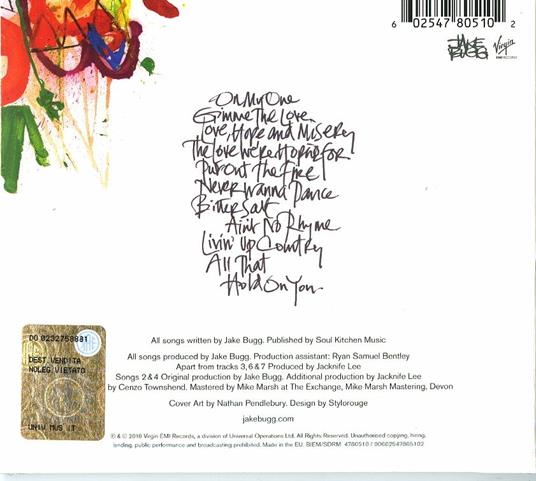 6 02547 80510 2
JAKE BUGG
Virgin
EMI RECORDS
On My One
Gimme The Love
Love, Hope and Misery
The Love We're Hoping for
Put out the Fire
Never Wanna Dance
Bitter Salt
Ain't No Rhyme
Livin' Up Country
All That
Hold On You
All songs written by Jake Bugg. Published by Soul Kitchen Music
All songs produced by Jake Bugg. Production assistant: Ryan Samuel Bentley
Apart from tracks 3, 6 & 7 Produced by Jacknife Lee
Songs 2 & 4 Original production by Jake Bugg. Additional production by Jacknife Lee
by Cenzo Townshend. Mastered by Mike Marsh at The Exchange, Mike Marsh Mastering, Devon
Cover Art by Nathan Pendlebury. Design by Stylorouge
jakebugg.com
℗ & © 2016 Virgin EMI Records, a division of Universal Operations Ltd. All Rights Reserved. Unauthorised copying, hiring,
lending, public performance and broadcasting prohibited. Made in the EU. BIEM/SDRM 4780510 / 00602547805102
DO 0232758881
DEST.VENDITA
NOLEG.VIETATO
UNIV MUS IT